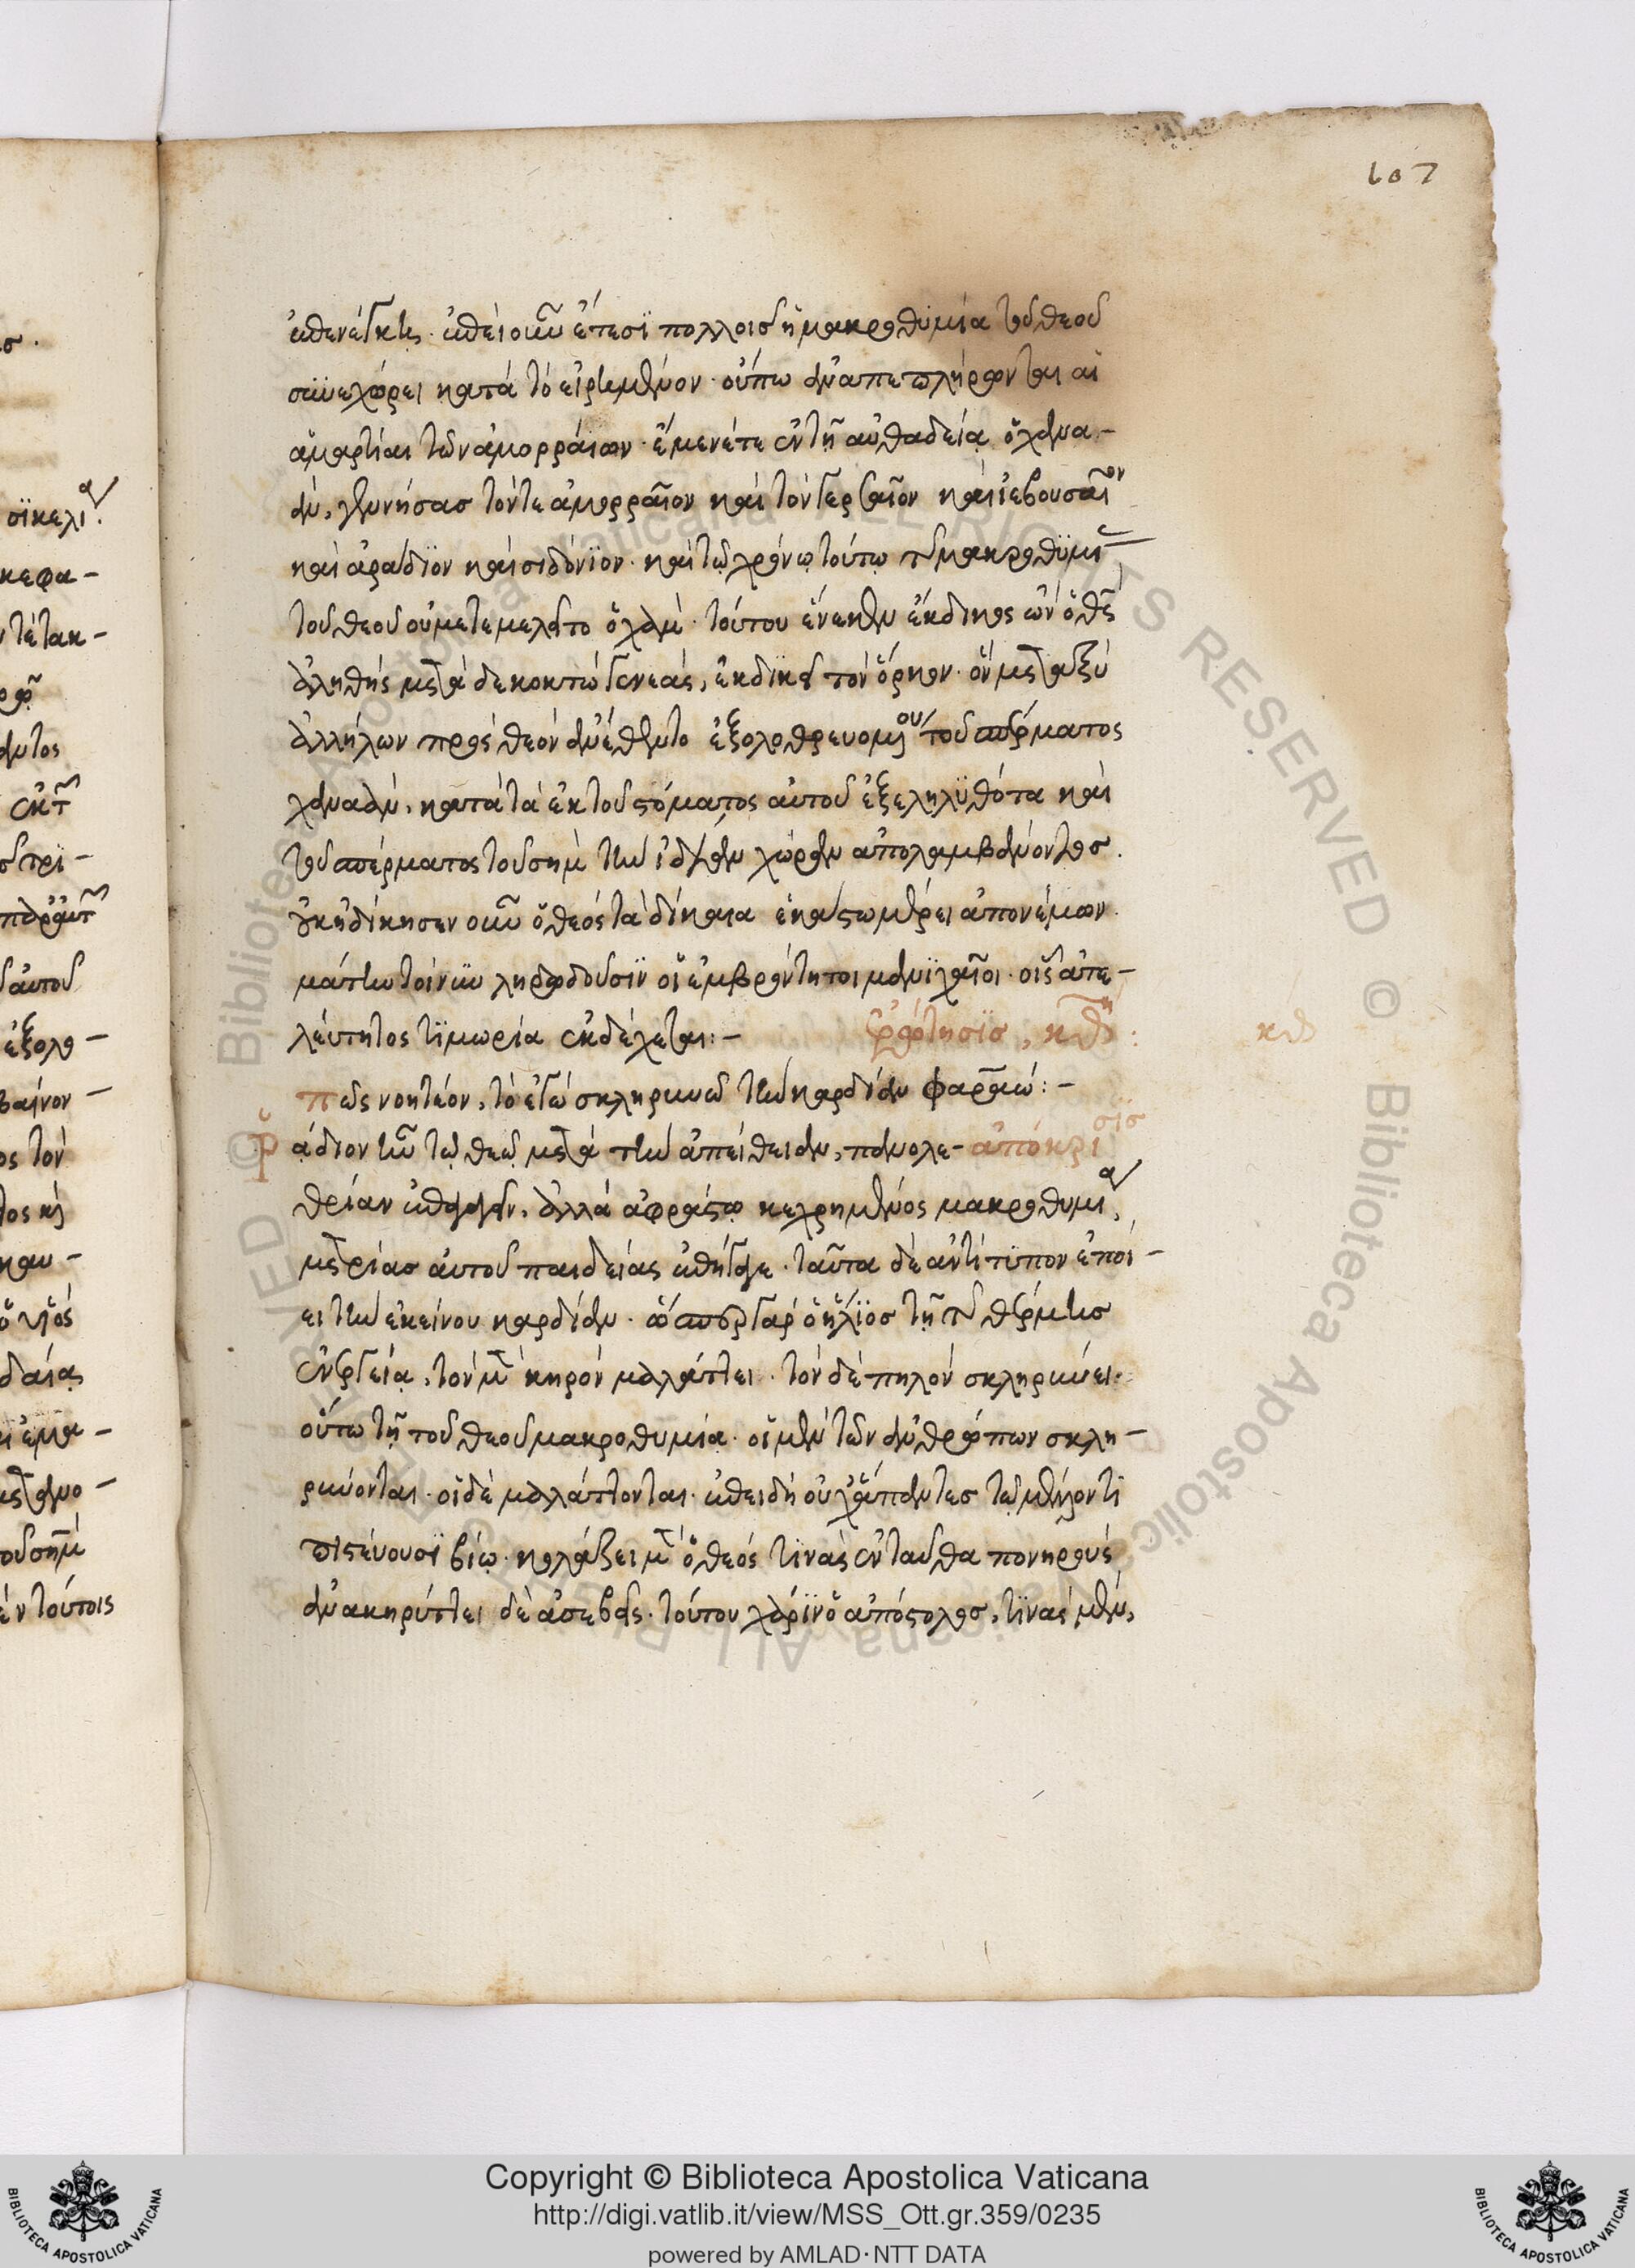 107
ἐπενέγκης. ἐπεὶ οὖν ἔτεσϊ πολλοισ ἡ μακροθυμία τοῦ θεοῦ
συνεχώρει κατὰ τὸ εἰρημένον· οὔπω ἀναπεπλήρωνται αἱ
ἁμαρτίαι τῶν ἀμορραίων· ἔμενέ τε ἐν τῇ αὐθαδεία ὁ χανα-
άν, γεννήσας τόν τε ἀμορραῖον καὶ τὸν γεργαῖον καὶ ἰεβουσαῖον
καὶ ἀράδϊον καὶ σιδόνϊον· καὶ τῷ χρόνω τούτω τῆς μακροθϋμίας
τοῦ θεοῦ οὐ μετεμελεῖτο ὁ χάμ· τούτου ἕνεκεν ἔκδικος ὢν ὁ θεὸς
ἀληθής μετὰ δεκοκτὼ γενεάς, ἐκδικεῖ τὸν ὅρκον· ὃν μεταξὺ
ἀλλήλων πρὸς θεὸν ἀνέθεντο ἐξολοθρευομένου τοῦ σπέρματος
χαναάν, κατὰ τὰ ἐκ τοῦ στόματος αὐτοῦ ἐξεληλϋθότα καὶ
τοῦ σπέρματος τοῦ σὴμ τὴν ἰδίαν χώραν ἀπολαμβάνοντος.
ἐκδίκησεν οὖν ὁ θεός τὰ δίκαια ἑκάστω μέρει ἀπονέμων.
μάτην τοίνϋν ληρωδοῦσϊν οἱ ἐμβρόντητοι μανϊχαῖοι· οἷς ἀτε-
λεύτητος τϊμωρία ἐκδέχεται:- ἐρώτησϊσ, κθ:
κθ
πῶς νοητέον, τὸ ἐγὼ σκληρυνῶ τὴν καρδίαν φαραώ:-
ῥάδιον ἦν τῷ θεῷ μετὰ τὴν ἀπείθειαν, πανολε- ἀπόκρισϊσ
θρίαν ἐπαγαγεῖν, ἀλλὰ ἀφράστω κεχρημένος μακροθυμία,
μετρίας αὐτοῦ παιδείας ἐπήγαγε· ταῦτα δὲ ἀντίτυπον ἐποί-
ει τὴν ἐκείνου καρδίαν· ὥσπερ γὰρ ὁ ἥλϊος τῇ τῆς θέρμης
ἐνεργεία, τὸν μὲν κηρὸν μαλάττει· τὸν δὲ πηλόν σκληρύνει.
οὕτω τῇ τοῦ θεοῦ μακροθυμία· οἱ μὲν τῶν ἀνθρώπων σκλη-
ρύνονται· οἱ δὲ μαλάττονται· ἐπειδὴ οὐχ ἅπαντες τῷ μέλλοντϊ
πιστεύουσϊ βίω· κολάζει μὲν ὁ θεός τϊνὰς ἐνταῦθα πονηρούς
ἀνακηρύττει δὲ ἀσεβεῖς· τούτου χάρϊν ὁ ἀπόστολος, τϊνὰς μὲν,
Copyright © Biblioteca Apostolica Vaticana
http://digi.vatlib.it/view/MSS_Ott.gr.359/0235
powered by AMLAD·NTT DATA
BIBLIOTECA APOSTOLICA VATICANA
BIBLIOTECA APOSTOLICA VATICANA